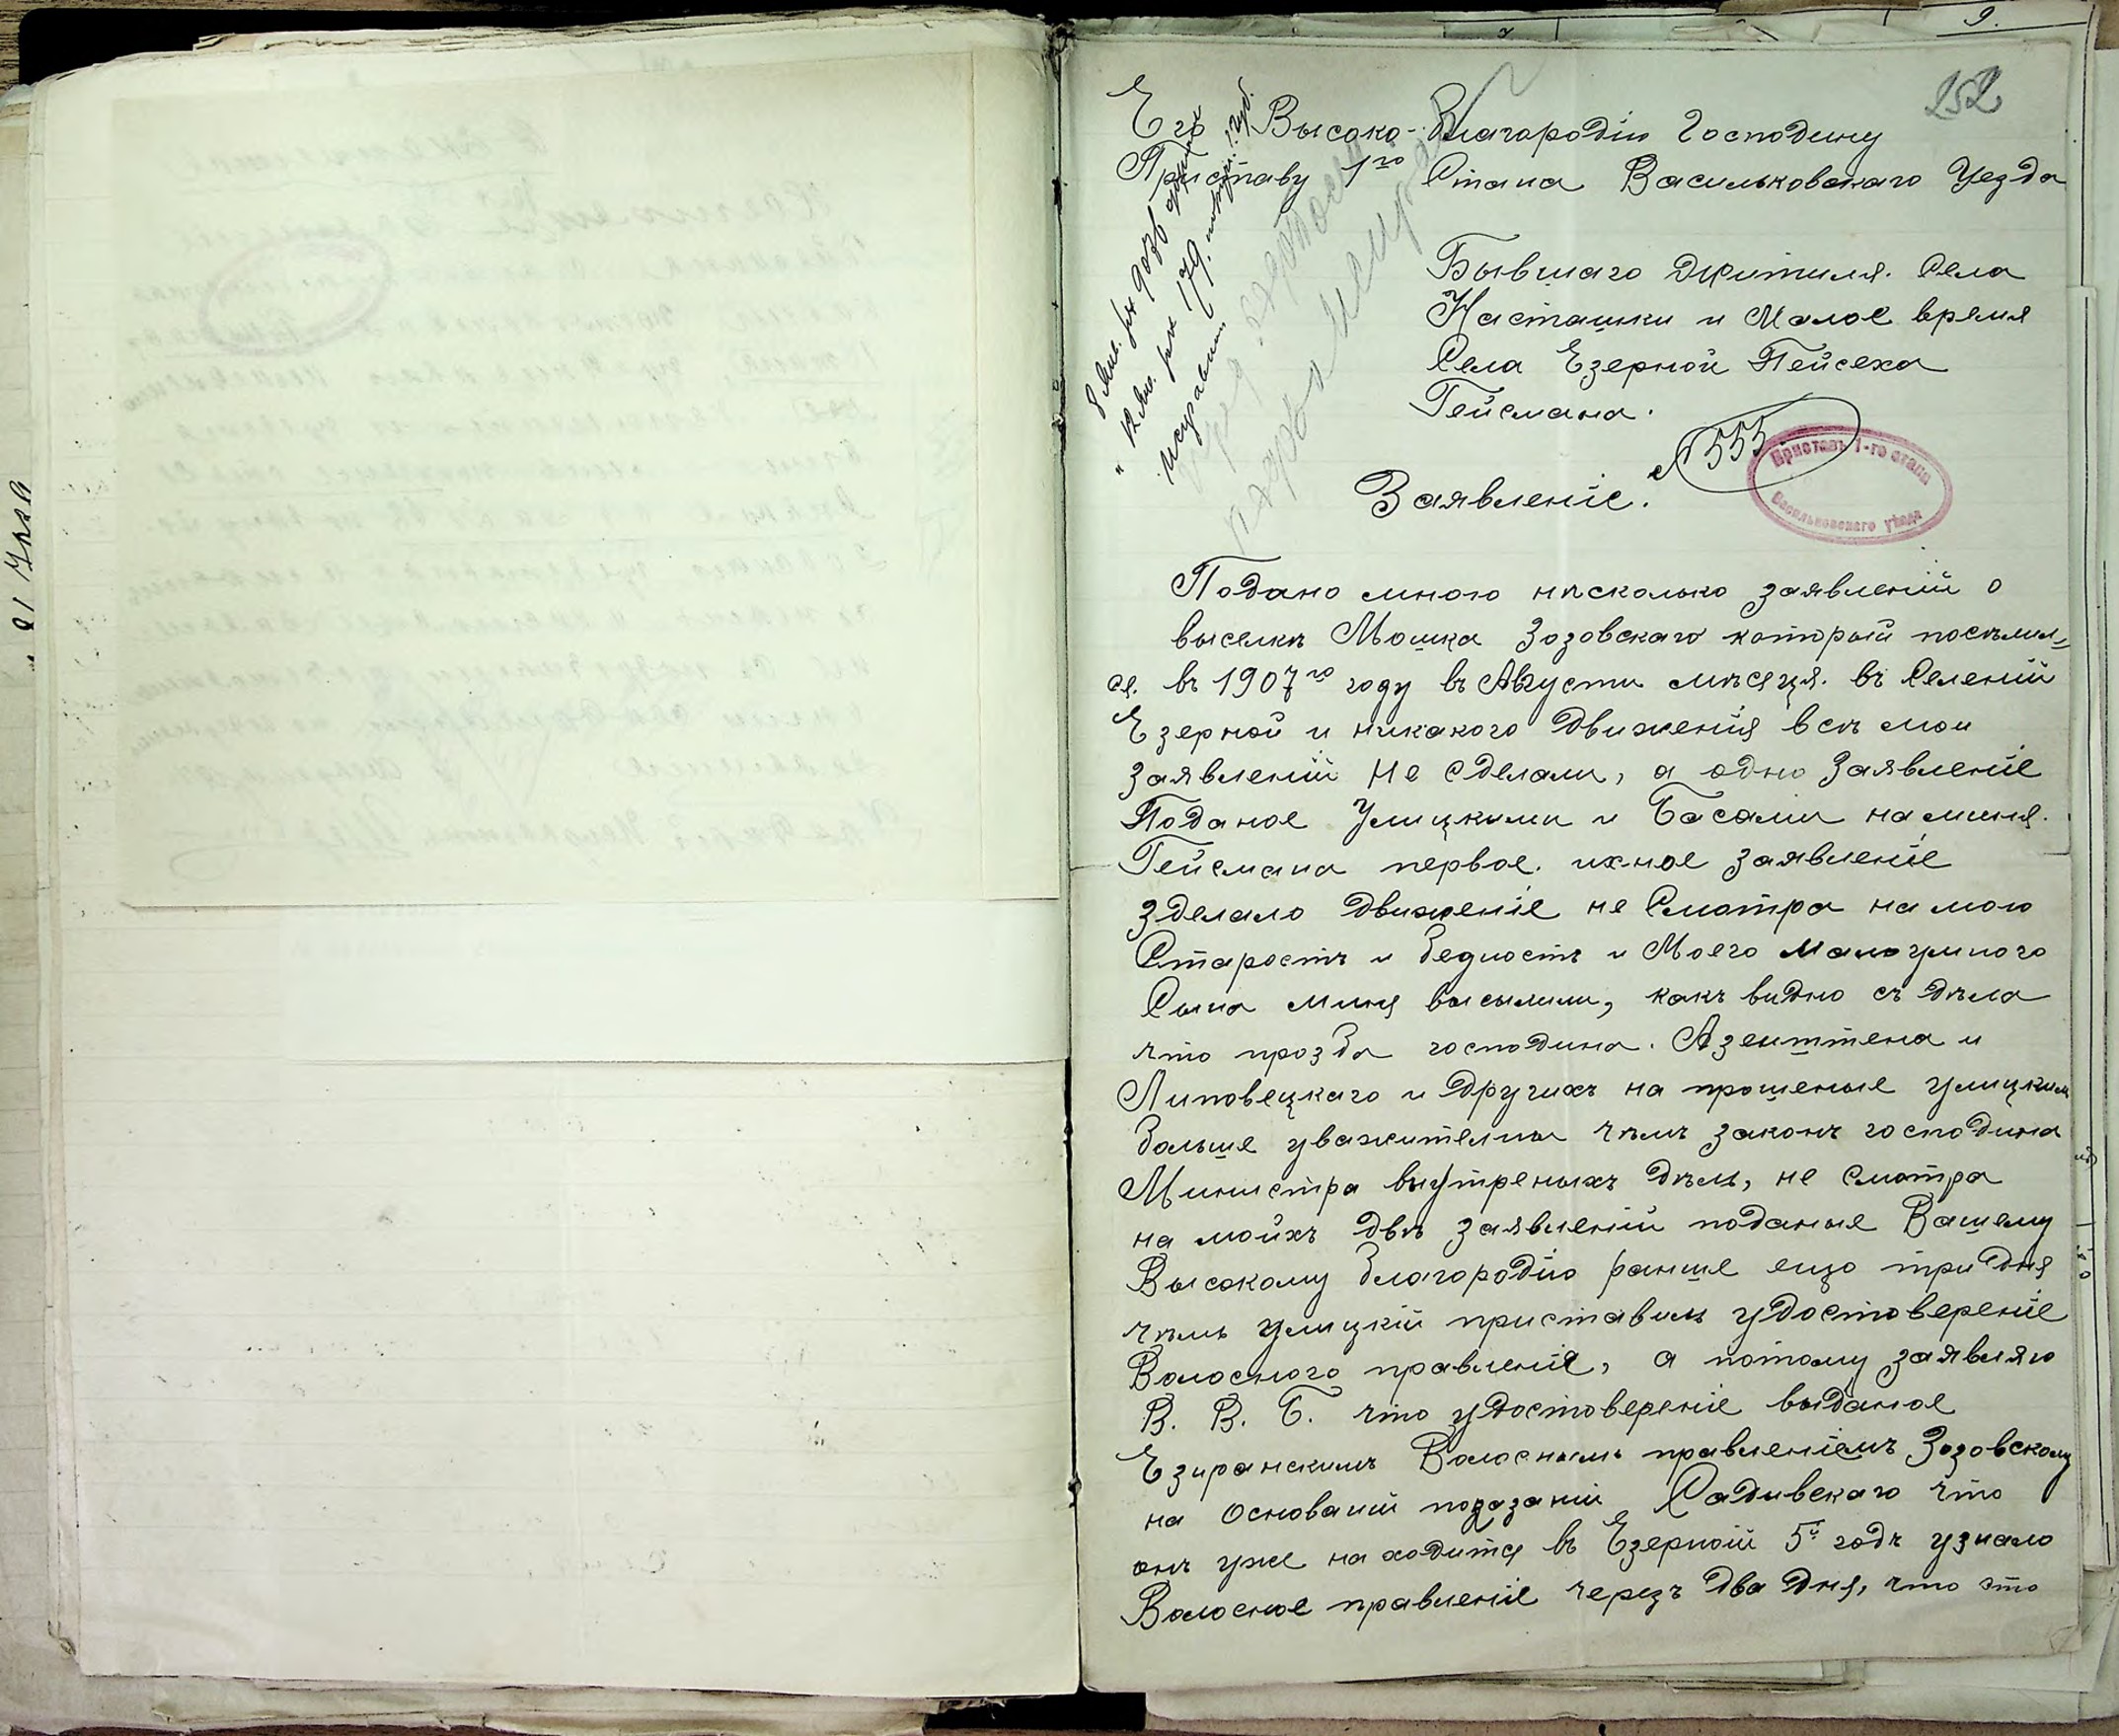 9.
252
Его Высоко-Благародію Господину
Приставу 1го Стана Васильковскаго Уезда
Бывшаго Джитиля. Села
Насташки и Малое время
Села Езерной Пейсеха
Гейсмана.
№ 555
Приставъ 1-го стана
Васильковскаго уѣзда
Заявленіе.
Подано мною нѣсколько заявленій о
выселкѣ Мошка Зозовскаго который посѣлил=
ся. въ 1907го году въ Августи мѣсяця. въ Селеній
Езерной и никакого движенія всѣ мои
заявленій не сделали, а одно заявленіе
Поданое Улицкими и Басами на миня.
Гейсмана первое. ихное заявленіе
зделало движеніе не Смотра на мою
Старость и бедность и Моего малоумного
Сына миня высылили, какъ видно съ дѣла
что прозба господина. Азенштена и
Липовецкаго и другихъ на прошеные улицким
больше уважителны чѣмъ законъ господина
Министра внутреныхъ дѣлъ, не Смотра
на мойхъ двѣ заявленій поданые Вашему
Высокому благородію раньше ещо три дня
чѣмъ улицкій приставилъ удостовереніе
Волосного правленія, а потому заявляю
В. В. Б. что удостовереніе выданое
Езиранскимъ Волоснымъ правленіемъ Зозовскому
на Основаній показаній Садивскаго что
онъ уже на ходится въ Езерной 5й годъ узнало
Волосное правленіе черезъ два дня, что это